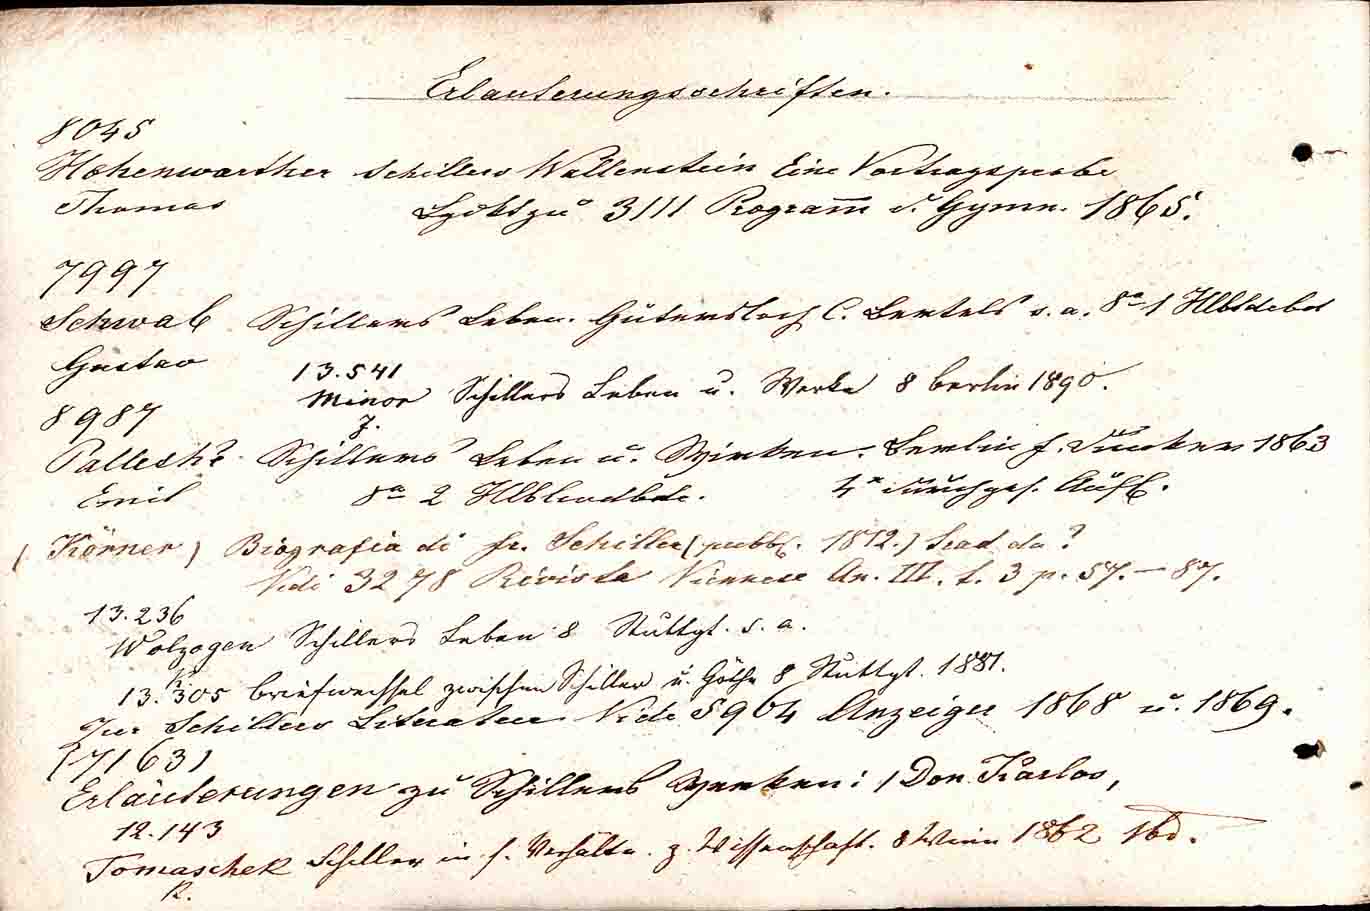 Erlauterungsschriften.
8045
Hohenwarther Schillers Wallenstein Eine Vortragsprobe
Thomas zu 3111 Programm d. Gymn. 1865.
7997
Schwab Schillers Leben. Gütersloh C. Bertels s. a. 8° 1 Hlblderbd
Gustav
13.541
Minor Schillers Leben u. Werke 8 Berlin 1890.
J.
8987
Palleske Schillers Leben u. Wirken. Berlin f. Duncker 1863
Emil 8° 2 Hlblwdbde. 4° durchges. Aufl.
(Körner) Biografia di Fr. Schiller (pubbl. 1812.) Trad da?
Vedi 3278 Rivista Viennese An. III. t. 3 p. 57. — 87.
13.236
Wolzogen Schillers Leben 8 Stuttgt. s. a.
13.305 Briefwechsel zwischen Schiller u. Göthe 8 Stuttgt. 1881.
Zur Schillers Literatur Vide 5964 Anzeiger 1868 u. 1869.
(7163)
Erläuterungen zu Schillers Werken: 1 Don Karlos,
12.143
Tomaschek Schiller in s. Verhältn. z. Wissenschaft. 8 Wien 1862 1bd.
K.